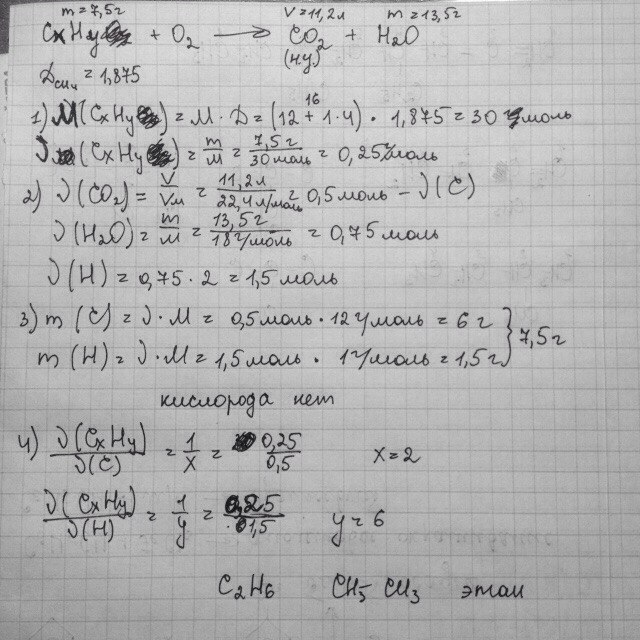 m = 7,5г V = 11,2л m = 13,5г
CxHy + O2 → CO2 + H2O
(ну)
DCH4 = 1,875
16
1) M(CxHy) = M · D = (12 + 1·4) · 1,875 = 30 г/моль
ν(CxHy) = m/M = 7,5г/30 моль = 0,25 моль
2) ν(CO2) = V/Vм = 11,2л/22,4 л/моль = 0,5 моль – ν(C)
ν(H2O) = m/M = 13,5г/18 г/моль = 0,75 моль
ν(H) = 0,75 · 2 = 1,5 моль
3) m (C) = ν · M = 0,5 моль · 12 г/моль = 6 г
m (H) = ν · M = 1,5 моль · 1 г/моль = 1,5 г } 7,5 г
кислорода нет
4) ν(CxHy)/ν(C) = 1/x = 0,25/0,5 x = 2
ν(CxHy)/ν(H) = 1/y = 0,25/1,5 y = 6
C2H6 CH3 CH3 этан